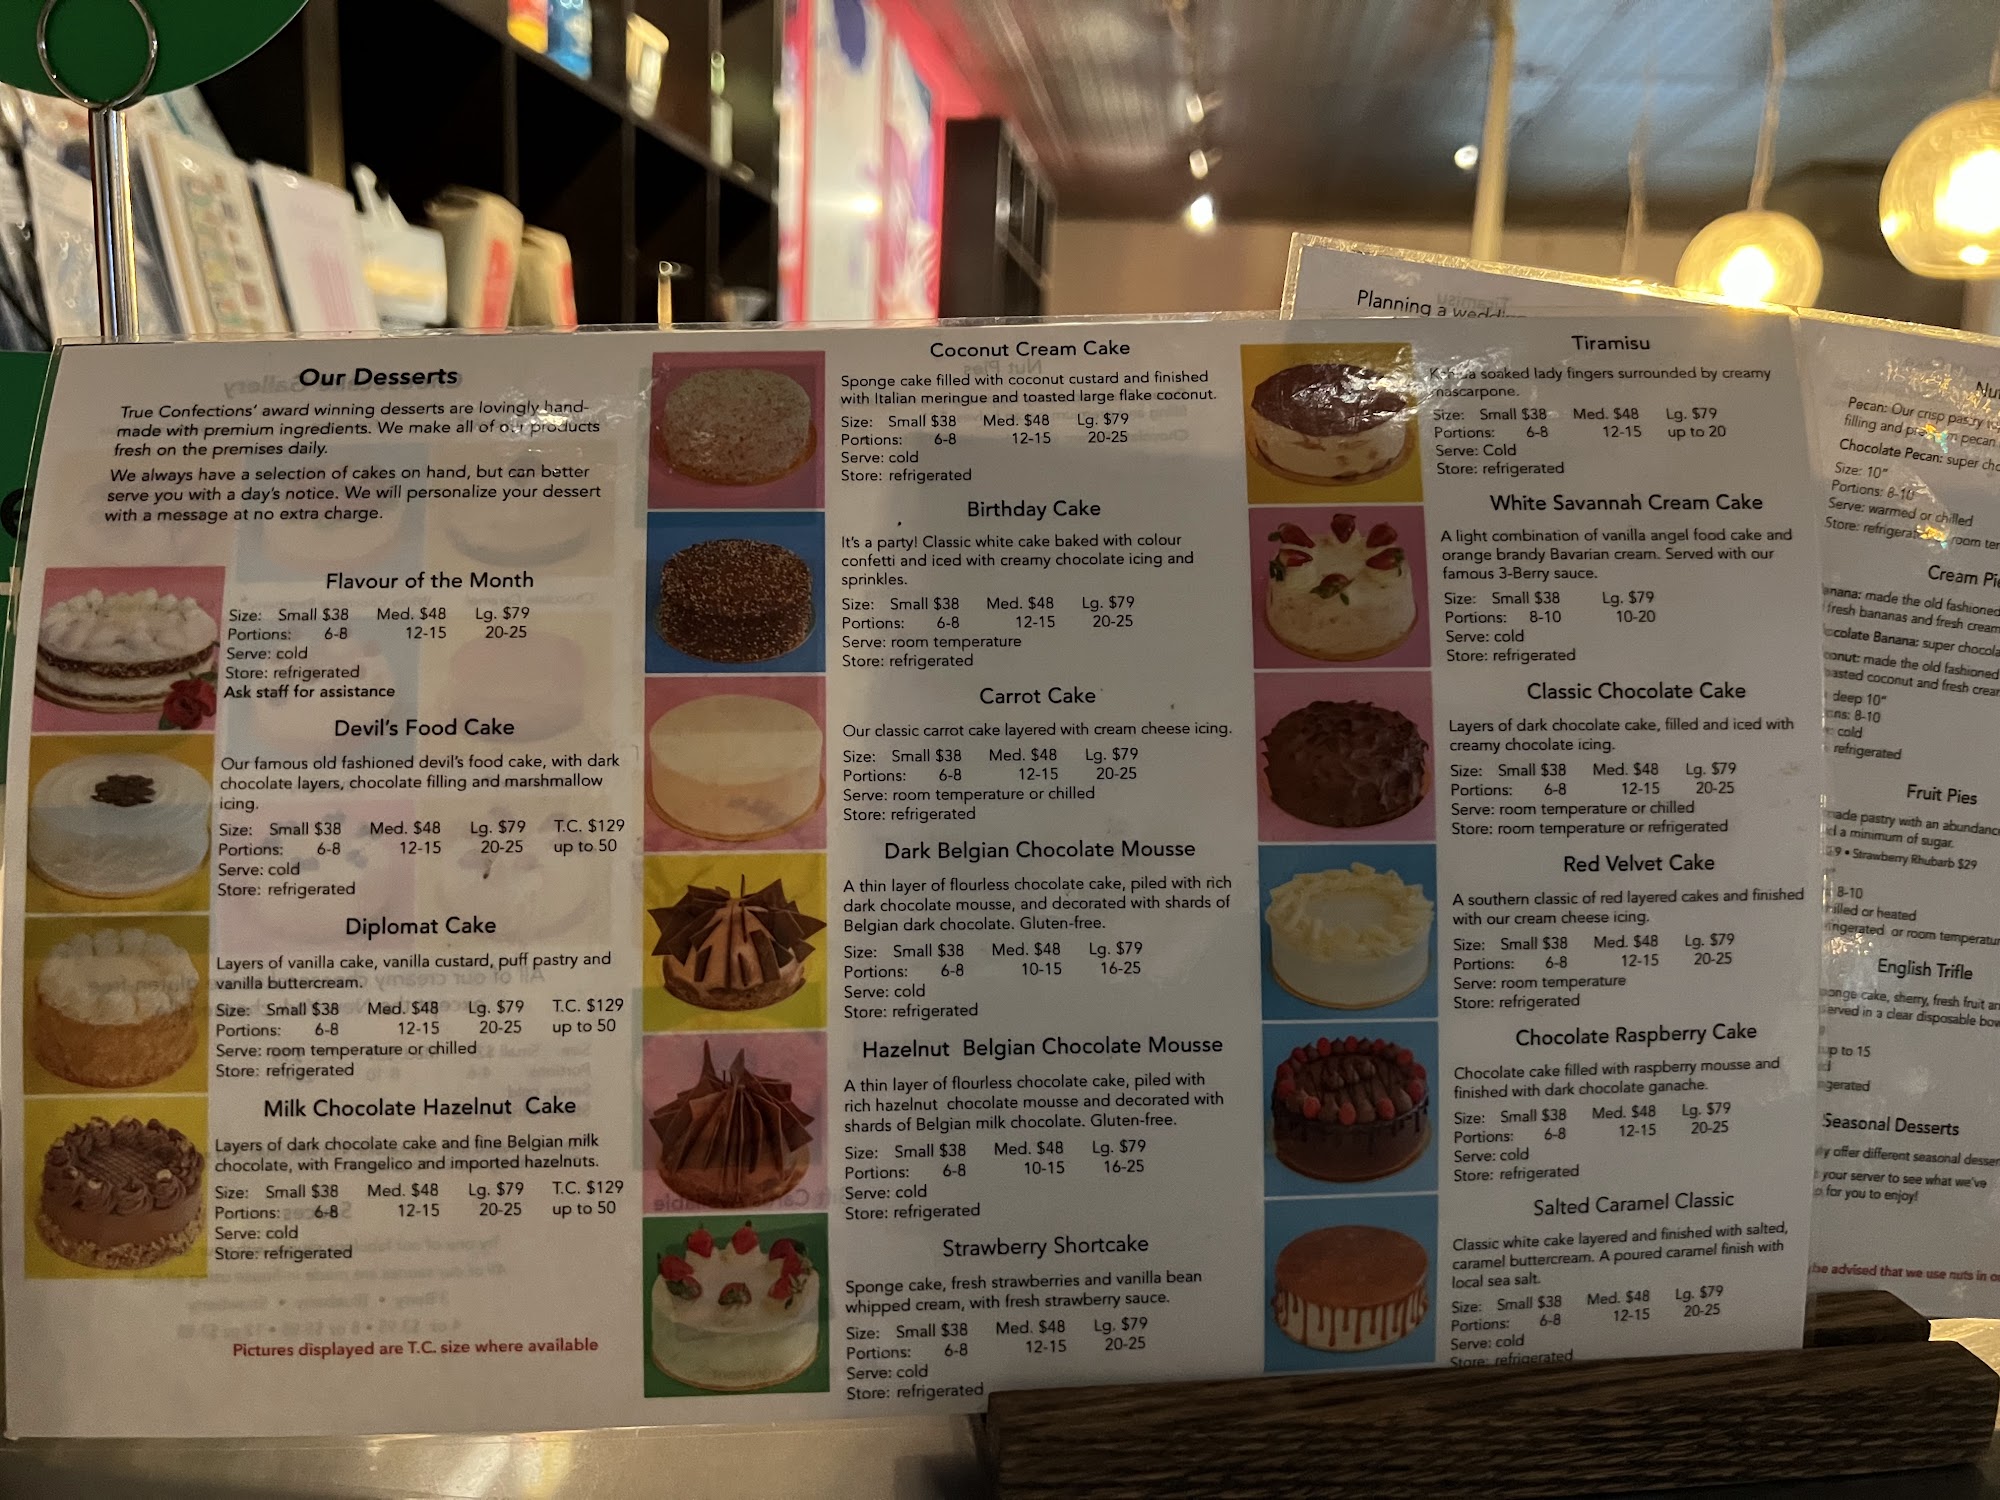 Our Desserts
True Confections' award winning desserts are lovingly hand-
made with premium ingredients. We make all of our products
fresh on the premises daily.
We always have a selection of cakes on hand, but can better
serve you with a day's notice. We will personalize your dessert
with a message at no extra charge.
Flavour of the Month
Size: Small $38 Med. $48 Lg. $79
Portions: 6-8 12-15 20-25
Serve: cold
Store: refrigerated
Ask staff for assistance
Devil's Food Cake
Our famous old fashioned devil's food cake, with dark
chocolate layers, chocolate filling and marshmallow
icing.
Size: Small $38 Med. $48 Lg. $79 T.C. $129
Portions: 6-8 12-15 20-25 up to 50
Serve: cold
Store: refrigerated
Diplomat Cake
Layers of vanilla cake, vanilla custard, puff pastry and
vanilla buttercream.
Size: Small $38 Med. $48 Lg. $79 T.C. $129
Portions: 6-8 12-15 20-25 up to 50
Serve: room temperature or chilled
Store: refrigerated
Milk Chocolate Hazelnut Cake
Layers of dark chocolate cake and fine Belgian milk
chocolate, with Frangelico and imported hazelnuts.
Size: Small $38 Med. $48 Lg. $79 T.C. $129
Portions: 6-8 12-15 20-25 up to 50
Serve: cold
Store: refrigerated
Pictures displayed are T.C. size where available
Coconut Cream Cake
Sponge cake filled with coconut custard and finished
with Italian meringue and toasted large flake coconut.
Size: Small $38 Med. $48 Lg. $79
Portions: 6-8 12-15 20-25
Serve: cold
Store: refrigerated
Birthday Cake
It's a party! Classic white cake baked with colour
confetti and iced with creamy chocolate icing and
sprinkles.
Size: Small $38 Med. $48 Lg. $79
Portions: 6-8 12-15 20-25
Serve: room temperature
Store: refrigerated
Carrot Cake
Our classic carrot cake layered with cream cheese icing.
Size: Small $38 Med. $48 Lg. $79
Portions: 6-8 12-15 20-25
Serve: room temperature or chilled
Store: refrigerated
Dark Belgian Chocolate Mousse
A thin layer of flourless chocolate cake, piled with rich
dark chocolate mousse, and decorated with shards of
Belgian dark chocolate. Gluten-free.
Size: Small $38 Med. $48 Lg. $79
Portions: 6-8 10-15 16-25
Serve: cold
Store: refrigerated
Hazelnut Belgian Chocolate Mousse
A thin layer of flourless chocolate cake, piled with
rich hazelnut chocolate mousse and decorated with
shards of Belgian milk chocolate. Gluten-free.
Size: Small $38 Med. $48 Lg. $79
Portions: 6-8 10-15 16-25
Serve: cold
Store: refrigerated
Strawberry Shortcake
Sponge cake, fresh strawberries and vanilla bean
whipped cream, with fresh strawberry sauce.
Size: Small $38 Med. $48 Lg. $79
Portions: 6-8 12-15 20-25
Serve: cold
Store: refrigerated
Tiramisu
soaked lady fingers surrounded by creamy
mascarpone.
Size: Small $38 Med. $48 Lg. $79
Portions: 6-8 12-15 up to 20
Serve: Cold
Store: refrigerated
White Savannah Cream Cake
A light combination of vanilla angel food cake and
orange brandy Bavarian cream. Served with our
famous 3-Berry sauce.
Size: Small $38 Lg. $79
Portions: 8-10 10-20
Serve: cold
Store: refrigerated
Classic Chocolate Cake
Layers of dark chocolate cake, filled and iced with
creamy chocolate icing.
Size: Small $38 Med. $48 Lg. $79
Portions: 6-8 12-15 20-25
Serve: room temperature or chilled
Store: room temperature or refrigerated
Red Velvet Cake
A southern classic of red layered cakes and finished
with our cream cheese icing.
Size: Small $38 Med. $48 Lg. $79
Portions: 6-8 12-15 20-25
Serve: room temperature
Store: refrigerated
Chocolate Raspberry Cake
Chocolate cake filled with raspberry mousse and
finished with dark chocolate ganache.
Size: Small $38 Med. $48 Lg. $79
Portions: 6-8 12-15 20-25
Serve: cold
Store: refrigerated
Salted Caramel Classic
Classic white cake layered and finished with salted,
caramel buttercream. A poured caramel finish with
local sea salt.
Size: Small $38 Med. $48 Lg. $79
Portions: 6-8 12-15 20-25
Serve: cold
Store: refrigerated
Planning a wedding
Pecan: Our crisp pastry
filling and pecan
Chocolate Pecan: super
Size: 10"
Portions: 8-10
Serve: warmed or chilled
Store: room
Cream
made the old fashioned
fresh bananas and fresh cream
Banana: super
made the old fashioned
coconut and fresh
deep 10"
8-10
cold
refrigerated
Fruit Pies
pastry with an abundance
a minimum of sugar.
• Strawberry Rhubarb $29
8-10
or heated
or room
English Trifle
cake, sherry, fresh fruit
in a clear disposable
up to 15
Seasonal Desserts
offer different seasonal
your server to see what we've
for you to enjoy!
be advised that we use nuts in